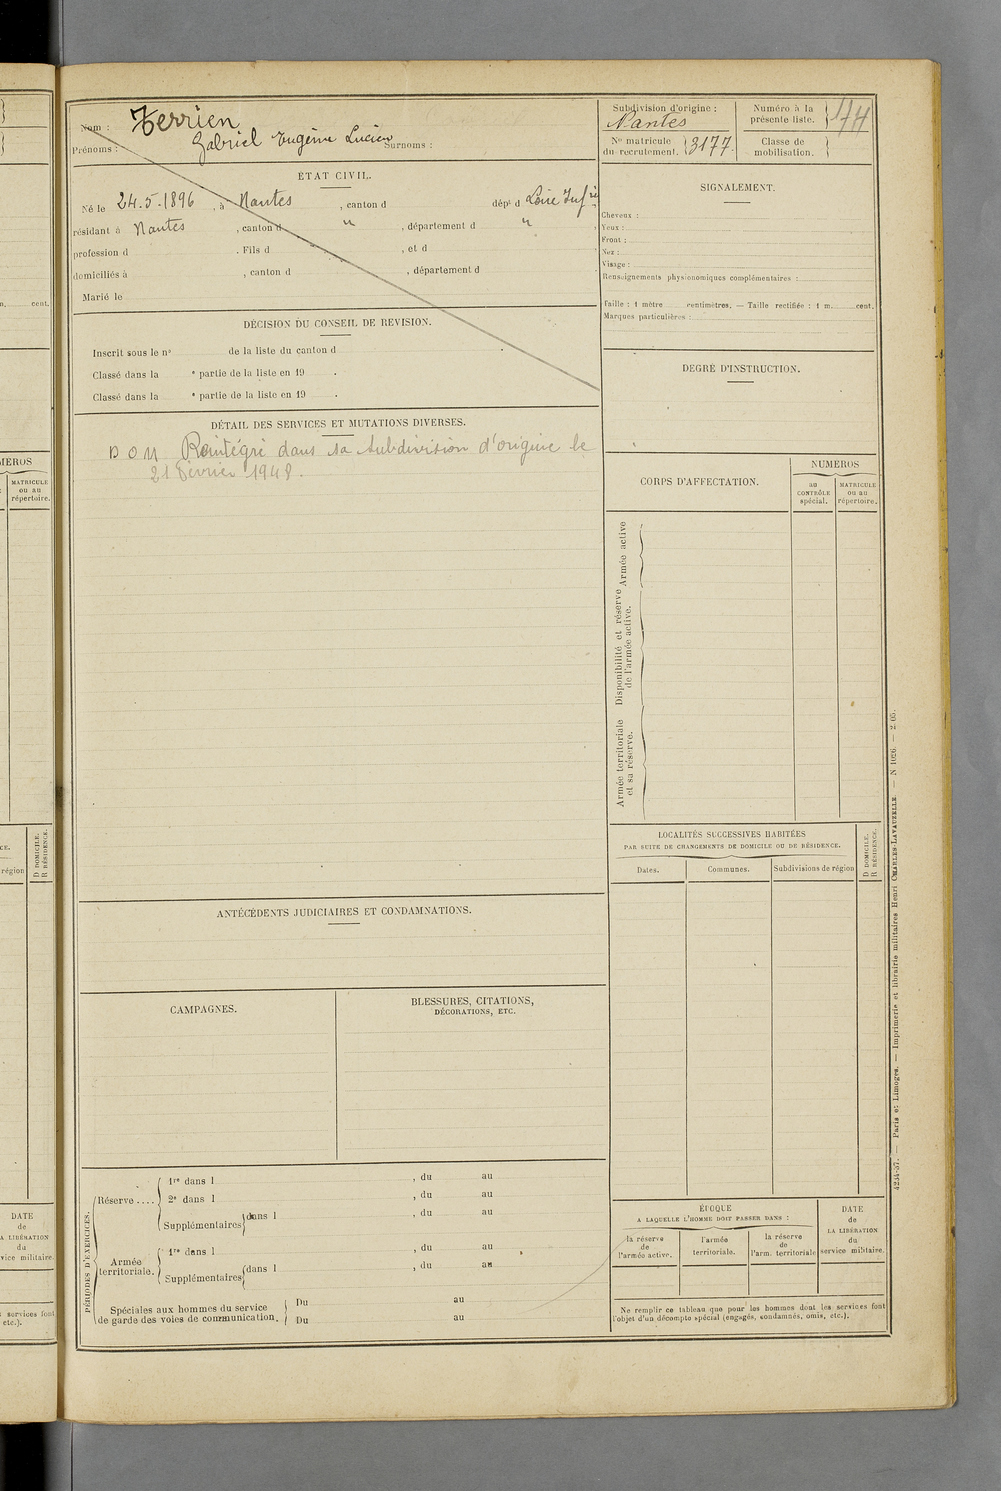 Nom : Terrien
Prénoms : Gabriel Eugène Lucien Surnoms :
ÉTAT CIVIL.
Né le 24.5.1896, à Nantes, canton d dépt d Loire Infre
résidant à Nantes, canton d " , département d " ,
profession d . Fils d , et d
domiciliés à , canton d , département d
Marié le
DÉCISION DU CONSEIL DE REVISION.
Inscrit sous le no de la liste du canton d .
Classé dans la e partie de la liste en 19 .
Classé dans la e partie de la liste en 19 .
DÉTAIL DES SERVICES ET MUTATIONS DIVERSES.
DOM Réintégré dans sa subdivision d'origine le
21 Février 1948.
ANTÉCÉDENTS JUDICIAIRES ET CONDAMNATIONS.
CAMPAGNES.
BLESSURES, CITATIONS,
DÉCORATIONS, ETC.
PÉRIODES D'EXERCICES.
Réserve ....
1re dans l , du au
2e dans l , du au
Supplémentaires dans l , du au
Armée
territoriale.
1re dans l , du au
Supplémentaires dans l , du au
Spéciales aux hommes du service
de garde des voies de communication.
Du au
Du au
Subdivision d'origine :
Nantes
Numéro à la
présente liste.
144
No matricule
du recrutement.
3177
Classe de
mobilisation.
SIGNALEMENT.
Cheveux :
Yeux :
Front :
Nez :
Visage :
Renseignements physionomiques complémentaires :
Taille : 1 mètre centimètres. — Taille rectifiée : 1 m. cent.
Marques particulières :
DEGRÉ D'INSTRUCTION.
CORPS D'AFFECTATION.
NUMÉROS
AU
CONTRÔLE
spécial.
MATRICULE
ou au
répertoire.
Armée active
Disponibilité et réserve
de l'armée active.
Armée territoriale
et sa réserve.
LOCALITÉS SUCCESSIVES HABITÉES
PAR SUITE DE CHANGEMENTS DE DOMICILE OU DE RÉSIDENCE.
D DOMICILE.
R RÉSIDENCE.
Dates.
Communes.
Subdivisions de région
ÉPOQUE
A LAQUELLE L'HOMME DOIT PASSER DANS :
la réserve
de
l'armée active.
l'armée
territoriale.
la réserve
de
l'arm. territoriale
DATE
de
LA LIBÉRATION
du
service militaire.
Ne remplir ce tableau que pour les hommes dont les services font
l'objet d'un décompte spécial (engagés, condamnés, omis, etc.).
4234-37. — Paris et Limoges. — Imprimerie et librairie militaires Henri CHARLES-LAVAUZELLE. — N 1026. — 2-05.
cent.
MÉROS
MATRICULE
ou au
répertoire.
D DOMICILE.
R RÉSIDENCE.
région
DATE
de
LA LIBÉRATION
du
vice militaire.
services font
etc.).